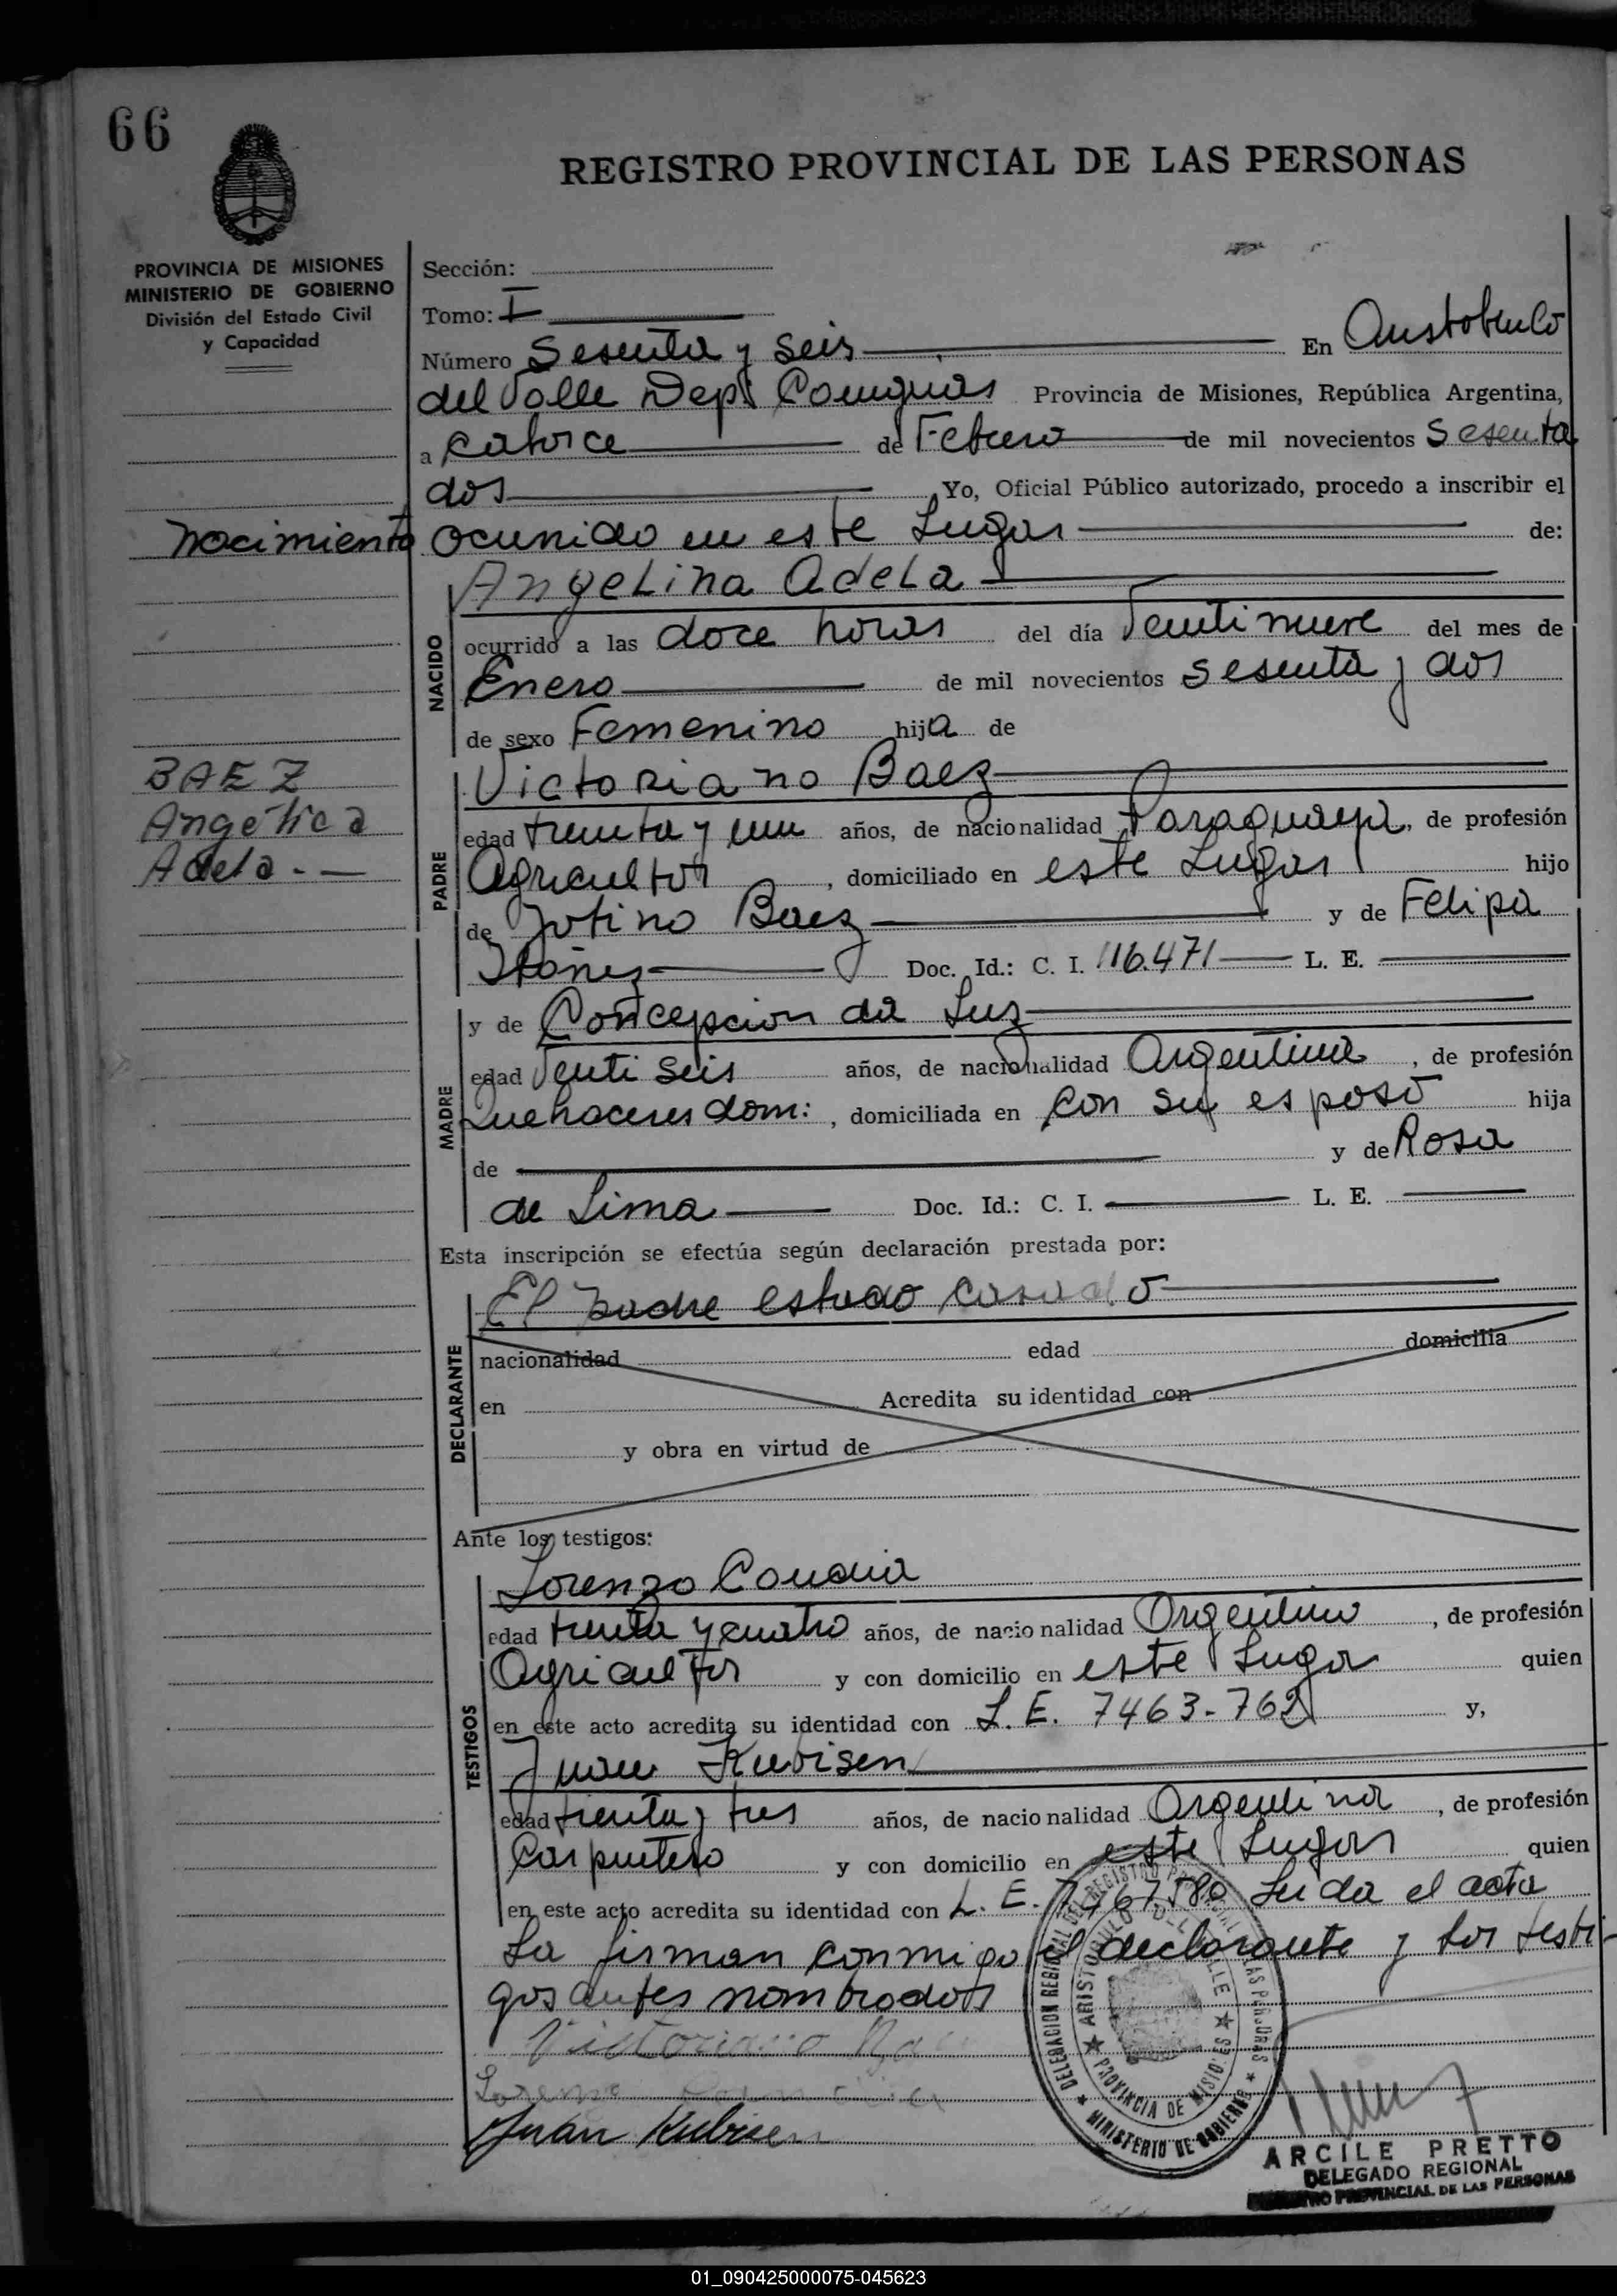 66
REGISTRO PROVINCIAL DE LAS PERSONAS
PROVINCIA DE MISIONES
MINISTERIO DE GOBIERNO
División del Estado Civil
y Capacidad
Sección:
Tomo: I
Número Sesenta y seis En Aristobulo
del Valle Dept Cainguas Provincia de Misiones, República Argentina,
a catorce de Febrero de mil novecientos Sesenta
dos Yo, Oficial Público autorizado, procedo a inscribir el
nacimiento ocurrido en este Lugar de:
Angelina Adela
NACIDO
ocurrido a las doce horas del día Ventinueve del mes de
Enero de mil novecientos sesenta y dos
de sexo Femenino hija de
BAEZ
Angélica
Adela.-
PADRE
Victoriano Baez
edad treinta y un años, de nacionalidad Paraguaya, de profesión
Agricultor, domiciliado en este Lugar hijo
de Baez y de Felipa
Doc. Id.: C. I. 116.471 L. E.
MADRE
y de Concepcion da Luz
edad Venti seis años, de nacionalidad Argentina, de profesión
Quehaceres dom:, domiciliada en con su esposo hija
de y de Rosa
de Lima Doc. Id.: C. I. L. E.
Esta inscripción se efectúa según declaración prestada por:
DECLARANTE
El padre estado casado
nacionalidad edad domicilia
en Acredita su identidad con
y obra en virtud de
Ante los testigos:
TESTIGOS
Lorenzo
edad treinta y cuatro años, de nacionalidad Argentino, de profesión
Agricultor y con domicilio en este Lugar quien
en este acto acredita su identidad con L. E. 7463-762 y,
Juan Kubisen
edad treinta y tres años, de nacionalidad Argentina, de profesión
Carpintero y con domicilio en este Lugar quien
en este acto acredita su identidad con L. E. Leida el acta
La firman conmigo el declarante y los testi-
gos antes nombrados
Victoriano
Juan Kubisen
DELEGACION REGIONAL DEL REGISTRO PROVINCIAL DE LAS PERSONAS
MINISTERIO DE GOBIERNO
ARISTOBULO DEL VALLE
PROVINCIA DE MISIONES
ARCILE PRETTO
DELEGADO REGIONAL
REGISTRO PROVINCIAL DE LAS PERSONAS
01_090425000075-045623